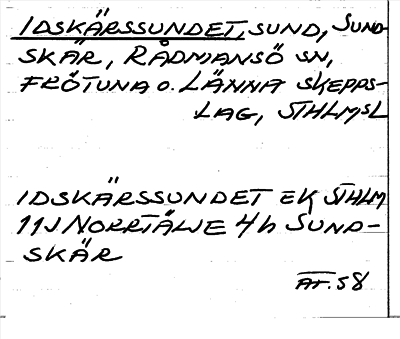 IDSKÄRSSUNDET, SUND, SUND-
SKÄR, RÅDMANSÖ SN,
FRÖTUNA O. LÄNNA SKEPPS-
LAG, STHLMSL
IDSKÄRSSUNDET EK STHLM
11J NORRTÄLJE 4h SUND-
SKÄR
AT. 58